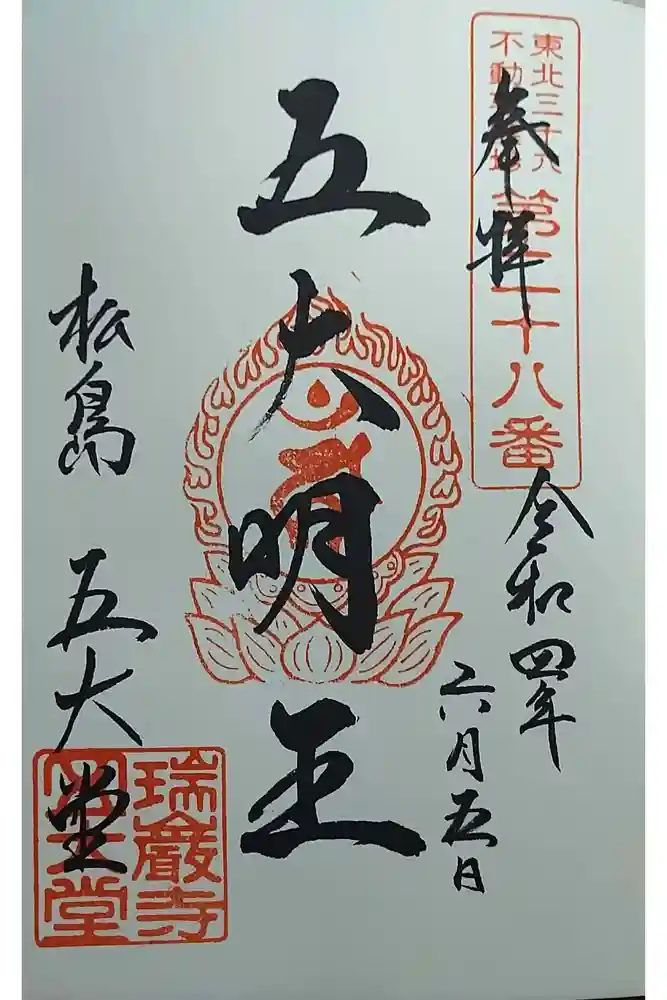 東北三十六
不動
第二十八番
奉拝
令和四年
六月五日
五大明王
松島 五大堂
瑞巌寺
五大堂